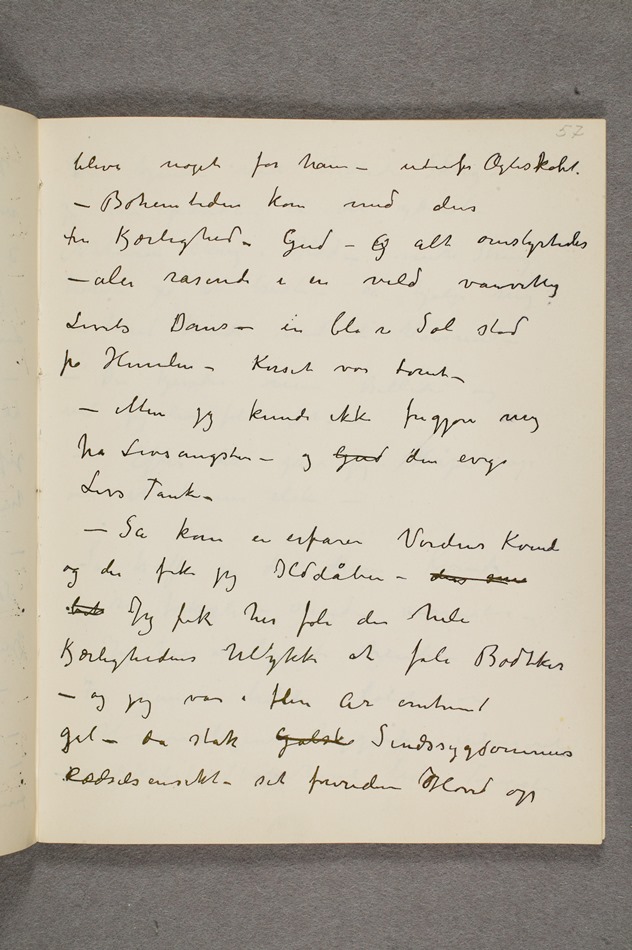 57
blive noget for ham – udenfor Ægteskabet.
– Bohemtiden kom med dens
fri Kjærlighed – Gud – og alt omstyrtedes
– alle rasende i en vild vanvittig
Livets Dans – en blo Sol stod
på Himlen – Korset var tomt –
– Men jeg kunde ikke frigjøre mig
fra Livsangsten – og Gud den evige
Livs Tanke –
– Så kom en erfaren Verdens Kvinde
og der fik jeg Ilddåben –
Jeg fik her føle den hele
Kjærlighedens Ulykke at føle
– og jeg var i flere År omtrent
gal – da stak Galsk Sindssygdommens
Rædselsansikt – sit forvredne Hoved op